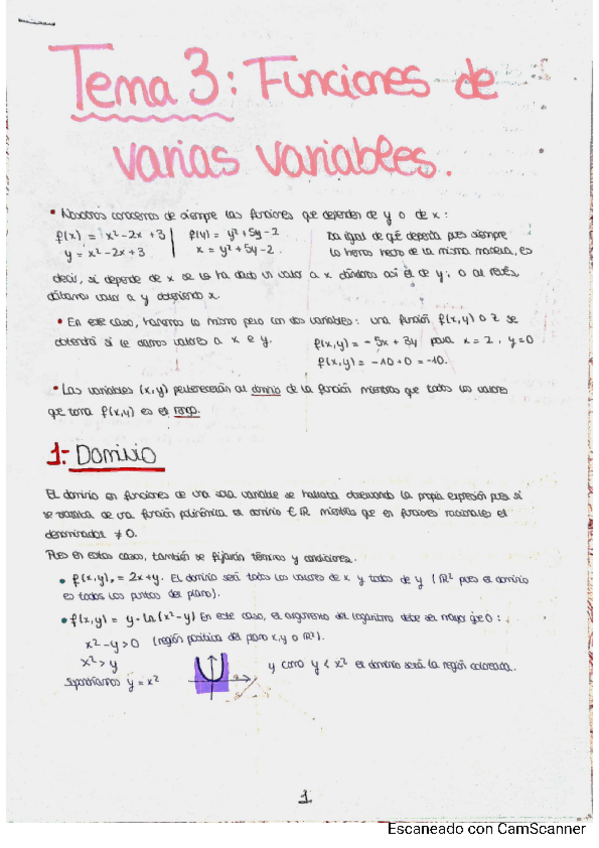 Tema 3: Funciones de
varias variables.
• Nosotros conocemos de siempre las funciones que dependen de y o de x :
f(x) = x²-2x +3 | f(y) = y²+5y-2 Da igual de qué dependa pues siempre
y = x²-2x+3 | x = y²+5y-2 lo hemos hecho de la misma manera, es
decir, si depende de x se le ha dado un valor a x dándonos así el de y; o al revés,
dábamos valor a y obteniendo x.
• En este caso, haremos lo mismo pero con dos variables: una función f(x,y) o z se
obtendrá si le damos valores a x e y. f(x,y) = -5x + 3y para x=2, y=0
f(x,y) = -10+0 = -10.
• Las variables (x,y) pertenecerán al dominio de la función mientras que todos los valores
que toma f(x,y) es el rango.
1- Dominio
El dominio en funciones de una sola variable se hallaba observando la propia expresión pues si
se trataba de una función polinómica el dominio ∈ ℝ mientras que en funciones racionales el
denominador ≠ 0.
Pues en estos casos, también se fijarán términos y condiciones.
• f(x,y) = 2x+y. El dominio será todos los valores de x y todos de y (ℝ² pues el dominio
es todos los puntos del plano).
• f(x,y) = y·ln(x²-y) En este caso, el argumento del logaritmo debe ser mayor que 0 :
x²-y>0 (región positiva del plano x,y o ℝ²).
x²>y y como y < x² el dominio será la región coloreada.
Suponíamos y = x²
1
Escaneado con CamScanner